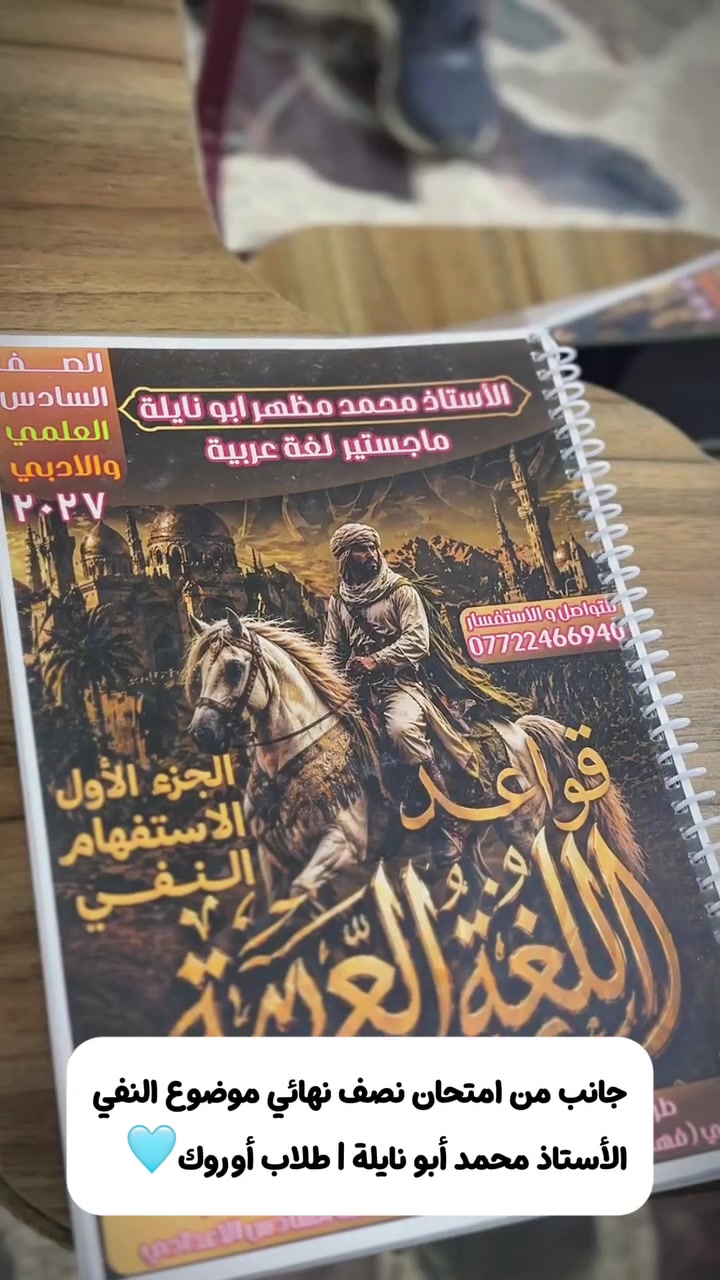 الصف
السادس
العلمي
والادبي
٢٠٢٧
الأستاذ محمد مظهر ابو نايلة
ماجستير لغة عربية
للتواصل و الاستفسار
07722466940
قواعد
اللغة العربية
الجزء الأول
الاستفهام
النفي
جانب من امتحان نصف نهائي موضوع النفي
الأستاذ محمد أبو نايلة | طلاب أوروك🩵
السادس الاعدادي